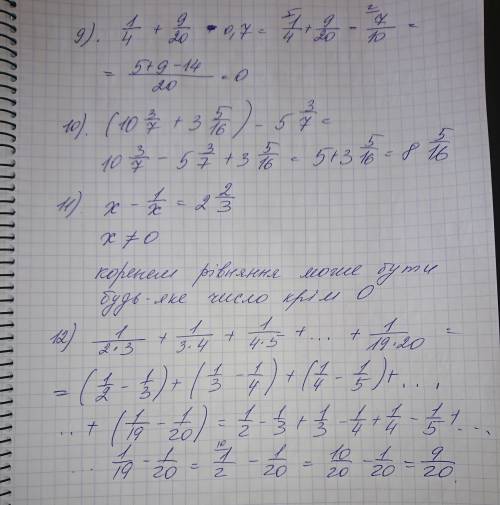 9). 1/4 + 9/20 - 0,7 = ⁵1/4 + 9/20 - ²7/10 =
= (5+9-14)/20 = 0
10). (10 3/7 + 3 5/16) - 5 3/7 =
10 3/7 - 5 3/7 + 3 5/16 = 5+3 5/16 = 8 5/16
11) x - 1/x = 2 2/3
x ≠ 0
коренем рівняння може бути
будь-яке число крім 0
12) 1/(2·3) + 1/(3·4) + 1/(4·5) + ... + 1/(19·20) =
= (1/2 - 1/3) + (1/3 - 1/4) + (1/4 - 1/5) + ...
.. + (1/19 - 1/20) = 1/2 - 1/3 + 1/3 - 1/4 + 1/4 - 1/5 + ...
... 1/19 - 1/20 = ¹⁰1/2 - 1/20 = 10/20 - 1/20 = 9/20